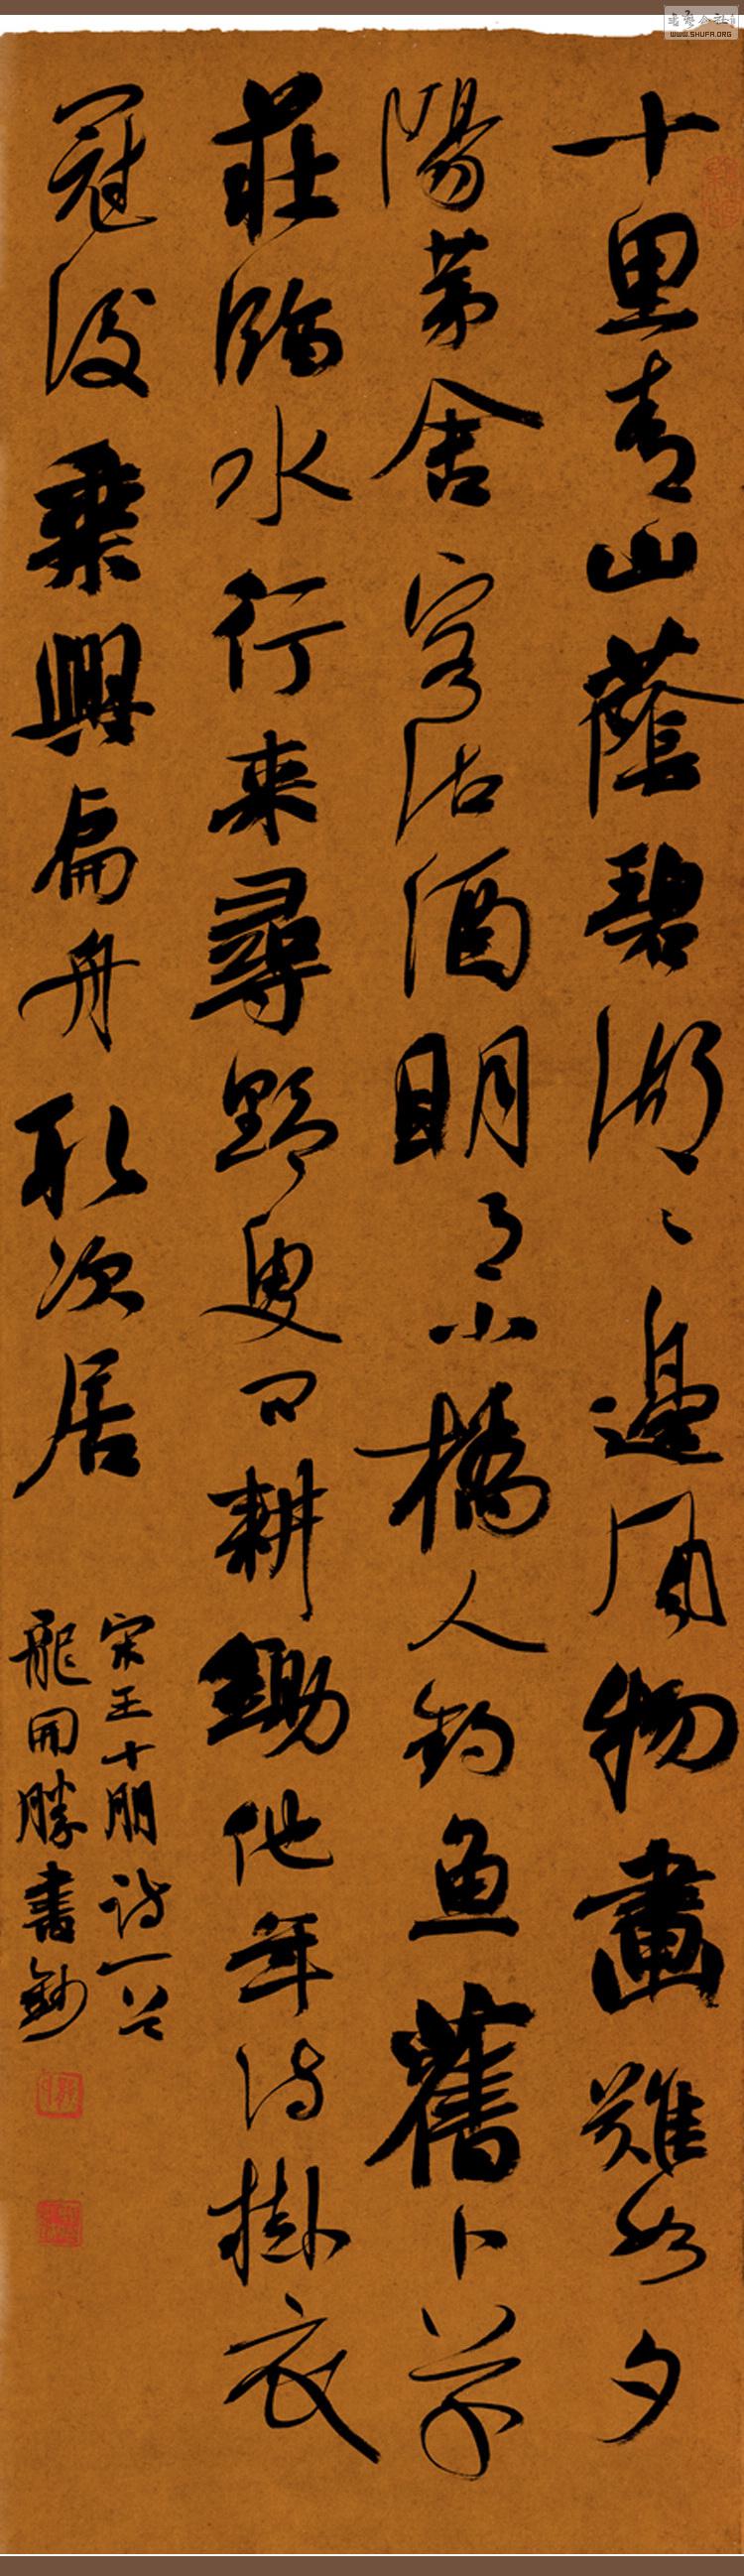 十里青山蔭碧湖〻邊風物畫難如夕
陽茅舍客沽酒明月小橋人釣鱼舊卜草
莊臨水竹来尋野叟問耕鋤他年待掛衣
冠後乘興扁舟取次居
宋王十朋詩一首
龍開勝書鈔
WWW.SHUFA.ORG